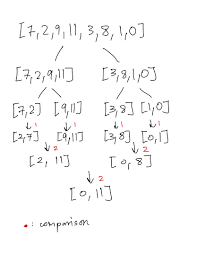 [7,2,9,11,3,8,1,0]
[7,2,9,11] [3,8,1,0]
[7,2] [9,11] [3,8] [1,0]
1 1 1 1
[2,7] [9,11] [3,8] [0,1]
2 2
[2, 11] [0,8]
2
[0,11]
: comparison